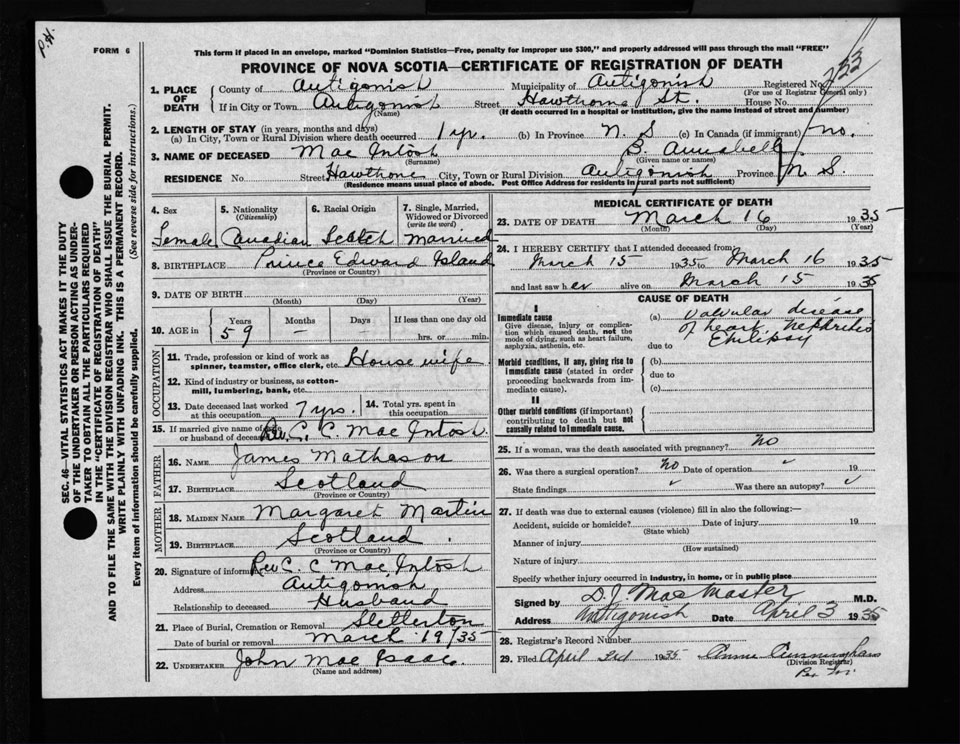 P.H.
FORM 6
This form if placed in an envelope, marked "Dominion Statistics—Free, penalty for improper use $300," and properly addressed will pass through the mail "FREE"
PROVINCE OF NOVA SCOTIA—CERTIFICATE OF REGISTRATION OF DEATH
1. PLACE OF DEATH
County of Antigonish Municipality of Antigonish Registered No.
(For use of Registrar General only)
If in City or Town Antigonish Street Hawthorne St. House No.
(Name) (If death occurred in a hospital or institution, give the name instead of street and number)
2. LENGTH OF STAY (in years, months and days)
(a) In City, Town or Rural Division where death occurred 1 yr. (b) In Province N. S (c) In Canada (if immigrant) no.
3. NAME OF DECEASED Mac Intosh B. Annabell
(Surname) (Given name or names)
RESIDENCE No Street Hawthone City, Town or Rural Division Antigonish Province N S.
(Residence means usual place of abode. Post Office Address for residents in rural parts not sufficient)
4. Sex 5. Nationality (Citizenship) 6. Racial Origin 7. Single, Married, Widowed or Divorced (write the word)
Female Canadian Scotch Married
8. BIRTHPLACE Prince Edward Island
(Province or Country)
9. DATE OF BIRTH
(Month) (Day) (Year)
10. AGE in Years Months Days If less than one day old
59 — hrs. or min.
OCCUPATION
11. Trade, profession or kind of work as spinner, teamster, office clerk, etc. House wife
12. Kind of industry or business, as cotton-mill, lumbering, bank, etc.
13. Date deceased last worked at this occupation 7 yrs. 14. Total yrs. spent in this occupation
15. If married give name of wife or husband of deceased Rev. C. C. Mac Intosh
FATHER
16. NAME James Matheson
17. BIRTHPLACE Scotland
(Province or Country)
MOTHER
18. MAIDEN NAME Margaret Martin
19. BIRTHPLACE Scotland.
(Province or Country)
20. Signature of informant Rev C. C Mac Intosh
Address Antigonish
Relationship to deceased Husband
21. Place of Burial, Cremation or Removal Stellerton
Date of burial or removal March 19/35
22. UNDERTAKER John Mac Isaac.
(Name and address)
MEDICAL CERTIFICATE OF DEATH
23. DATE OF DEATH March 16 1935
(Month) (Day) (Year)
24. I HEREBY CERTIFY that I attended deceased from
March 15 1935 to March 16 1935
and last saw her alive on March 15 1935
CAUSE OF DEATH
I
Immediate cause
Give disease, injury or complication which caused death, not the mode of dying, such as heart failure, asphyxia, asthenia, etc.
(a) Valvular disease
of heart. Nephritis
Epilepsy
due to
Morbid conditions, if any, giving rise to immediate cause (stated in order proceeding backwards from immediate cause).
(b)
due to
(c)
II
Other morbid conditions (if important) contributing to death but not causally related to immediate cause.
25. If a woman, was the death associated with pregnancy? No
26. Was there a surgical operation? No Date of operation 19
State findings Was there an autopsy?
27. If death was due to external causes (violence) fill in also the following:—
Accident, suicide or homicide? Date of injury 19
(State which)
Manner of injury
(How sustained)
Nature of injury
Specify whether injury occurred in industry, in home, or in public place
Signed by D. J. MacMaster M.D.
Address Antigonish Date April 3 1935
28. Registrar's Record Number
29. Filed April 3rd 1935 Annie Cunningham
(Division Registrar)
SEC. 46—VITAL STATISTICS ACT MAKES IT THE DUTY
OF THE UNDERTAKER OR PERSON ACTING AS UNDER-
TAKER TO OBTAIN ALL THE PARTICULARS REQUIRED
IN THE "CERTIFICATE OF REGISTRATION OF DEATH"
AND TO FILE THE SAME WITH THE DIVISION REGISTRAR WHO SHALL ISSUE THE BURIAL PERMIT.
WRITE PLAINLY WITH UNFADING INK. THIS IS A PERMANENT RECORD.
Every item of information should be carefully supplied. (See reverse side for instructions.)